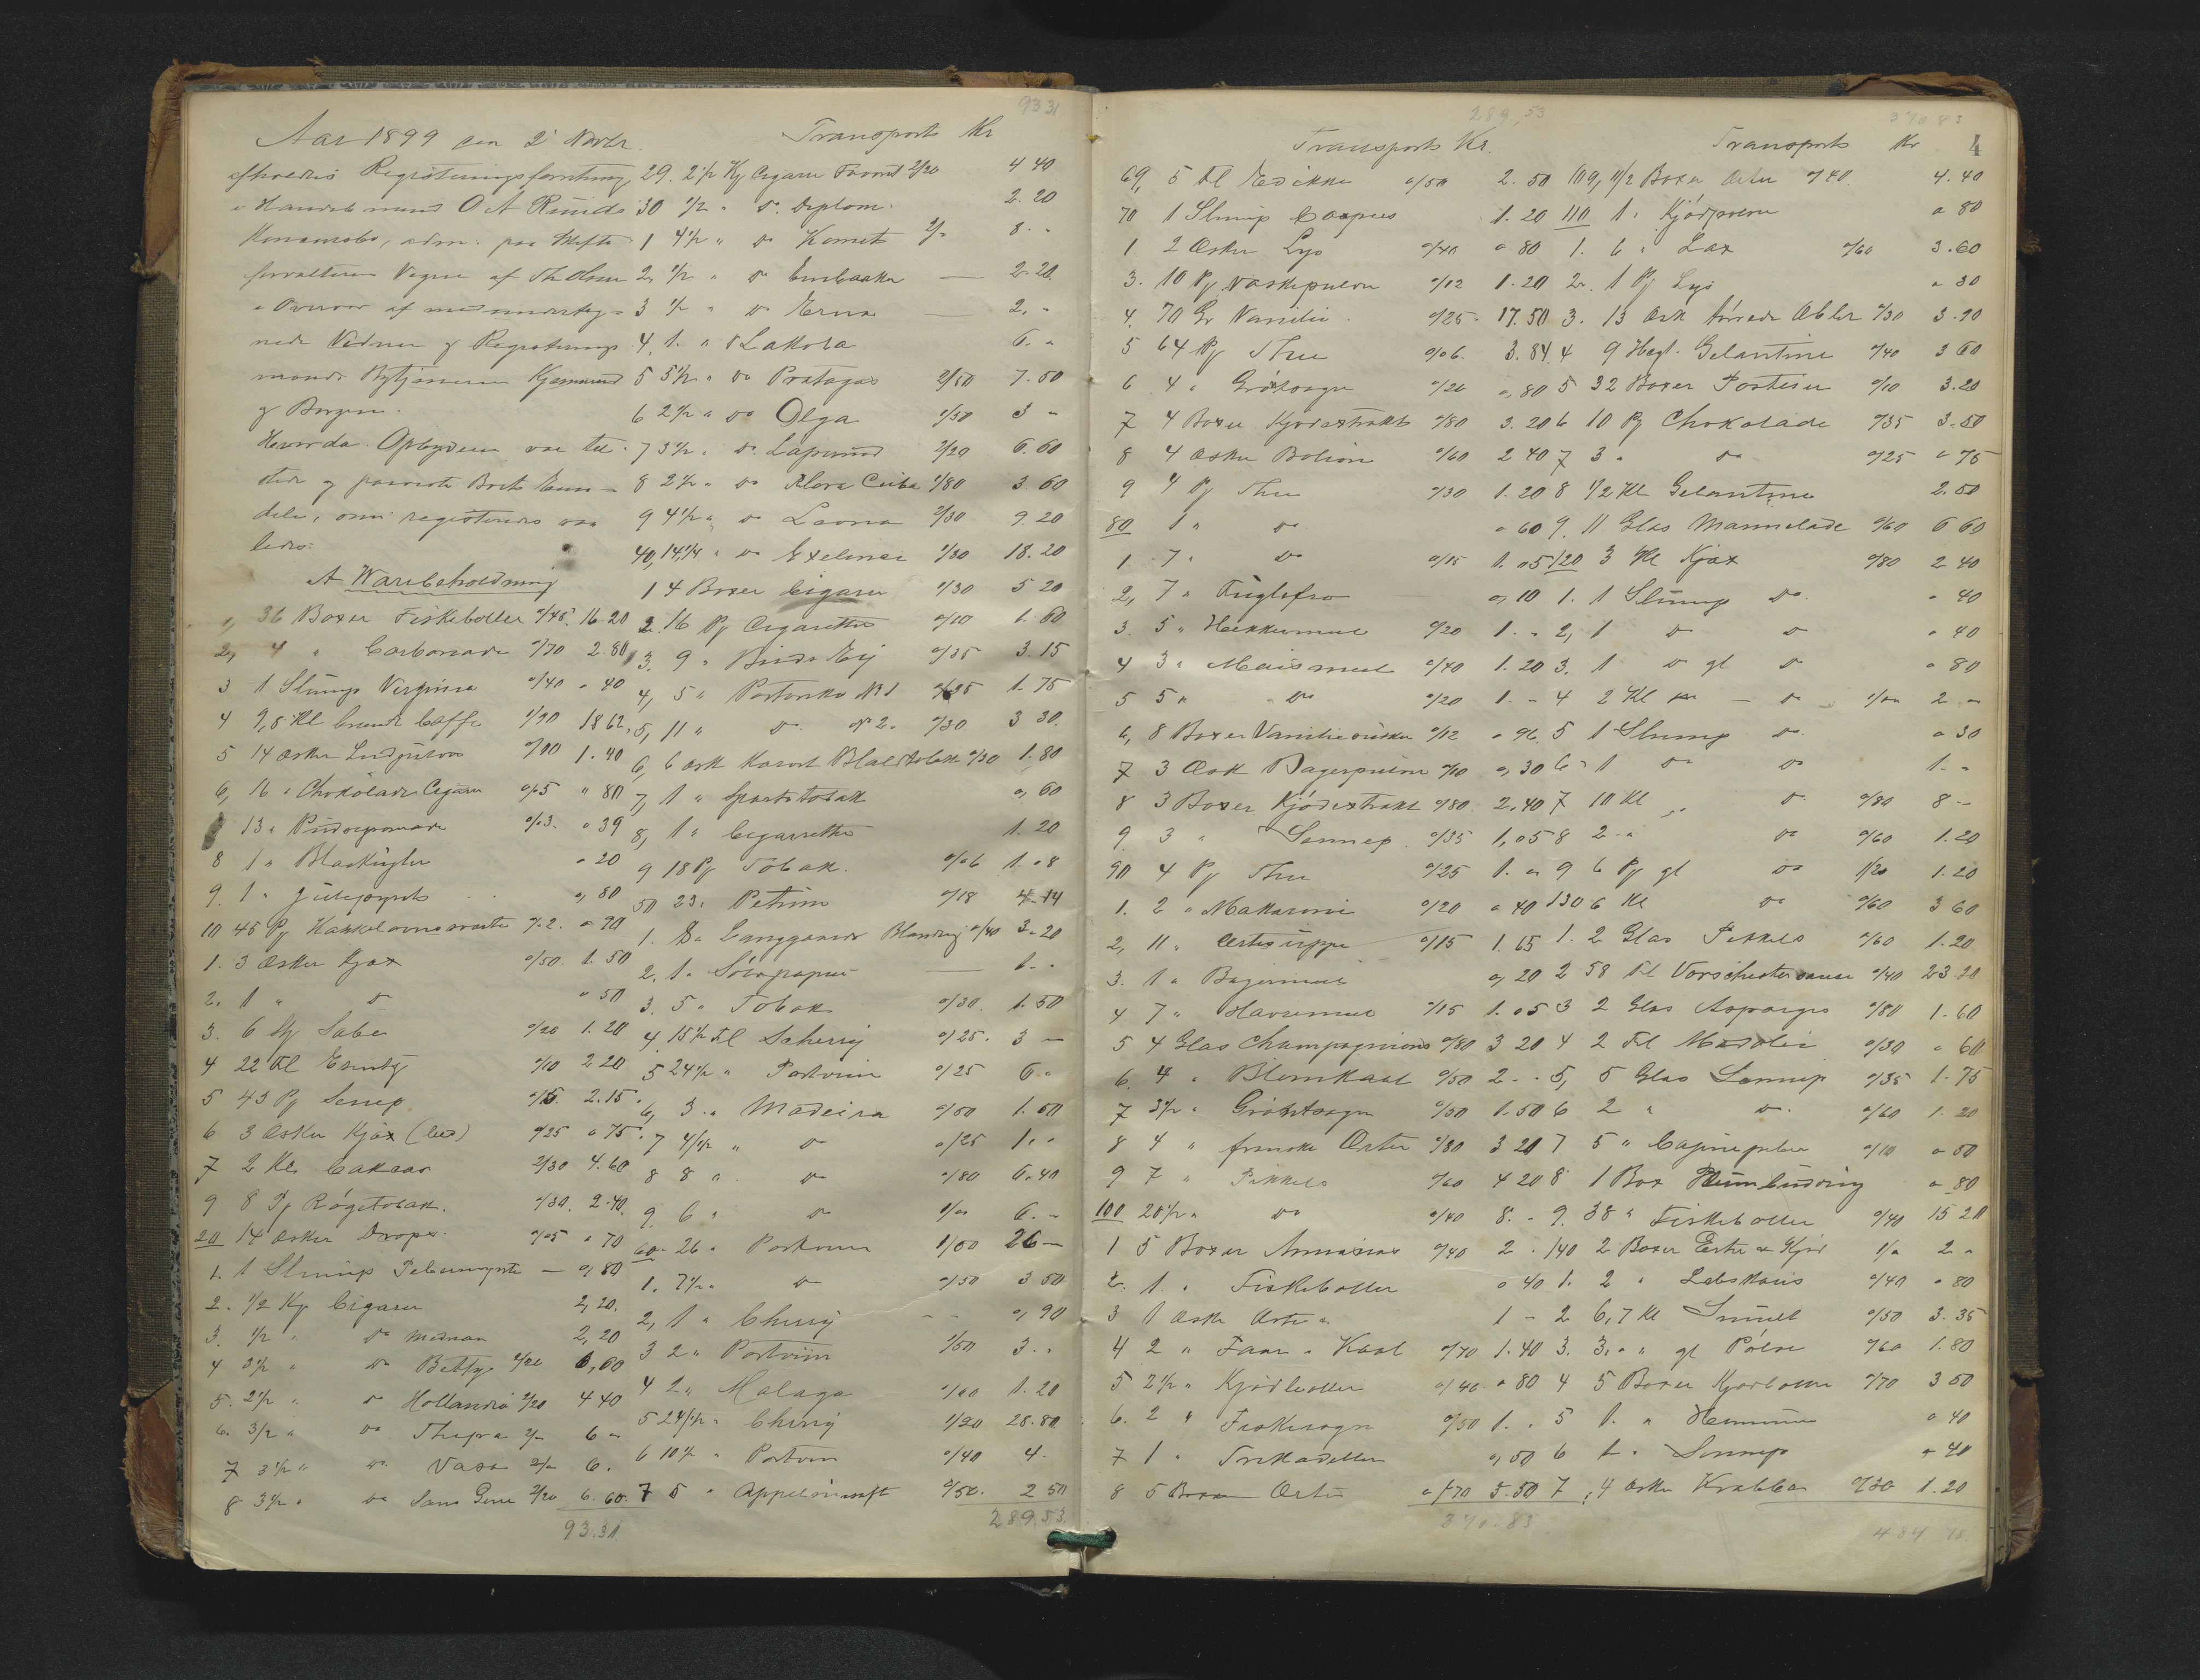 93 31
Aar 1899 den 2 Novbr.
afholdtes Registreringsforretning
i Handelsmand O A Ruuds
Konkursbo, adm. paa Skifte
forvalterens Vegne af Th Olsen
i Overvær af medundertegnede
nede Vidner og Registrerings
mænd Bytjenerne
og Borgen.
Hvorda. Opbyderen var til
stede og paaviste Boets Eien
dele, som registreredes saa
ledes:
A Warebeholdning
1, 36 Boxer Fiskeboller o/45. 16.20
2, 4 " Carbonade o/70 2.80
3 1 Slump Virginia o/40 " 40
4 9,8 Kl brændt Caffe 1/90 18 62.
5 14 Æsker o/10 1.40
6, 16 " Chokolade Cigarer o/05 " 80
13 " Pudsepomade o/03. " 39
8 1 " Blaakugler " 20
9. 1 " Julepynt " 80
10 45 Pg Kakkelovnssværte o/02. " 90
1. 3 Æsker Kjæx o/50. 1.50
2. 1 " do " 50
3. 6 Stg Sæbe o/20 1.20
4 22 Fl o/10 2 20
5 43 Pg Senep o/05. 2.15
6 3 Æsker Kjæx (løs) o/25 " 75
7 2 Kl Cakaao 2/30 4.60
9 8 Pg Røgetobak. o/30. 2.40
20 14 Æsker Drops. o/05 " 70
1. 1 Slump Pebermynte — " 80
2. 1/2 Kg Cigarer 2,20.
3. 1/2 " do 2,20
4 3 1/2 " do Betty 2/20 6,60
5. 2 1/2 " do Hollandia 2/20 4 40
6. 3 1/2 " do 2/" 6 "
7 3 1/2 " do Vasa 2/" 6.
8 3 1/2 " do Sans Gene 2/20 6.60
93.31
Transport Kr
29. 2 1/2 Kg Cigarer Favorit 2/20 4 40
30 1/2 " do Diplom. 2.20
1 4 1/2 " do Komet 2/" 8. "
2 1/2 " do — 2.20
3 1/2 " do Erna — 2. "
4, 1. " do Lakota 6. "
5 3 1/2 " do 2/50 7.50
6 2 1/2 " do Olga 1/50 3 "
7 3 1/2 " do 2/20 6.60
8 2 1/2 " do Flora Cuba 1/80 3.60
9 4 1/2 " do Leona 2/30 9.20
40, 14 1/4 " do 1/30 18.20
1 4 Boxer Cigarer 1/30 5 20
2. 16 Pg Cigaretter o/10 1.60
3. 9 " o/35 3.15
4, 5 " Portoriko No 1 o/35 1.75
5, 11 " do No 2. o/30 3 30.
6, 6 Æsk Karvet Bladtobak o/30 1.80
7, 1 " Sportstobak " 60
8, 1 " Cigaretter 1.20
9 18 Pg Tobak. o/06 1.08
50 23 " Petum o/18 4.14
1. 8 " Langgaards Blanding o/40 3.20
2. 1 " Sølvpapir — 1. "
3. 5 " Tobak o/30. 1.50
4. 15 1/2 Fl Scherry o/25. 3 —
5 24 1/2 " Portviin o/25 6 "
6, 3 " Madeira o/50 1.50
7 4/1/2 " do o/25 1. "
8 8 " do o/80 6.40
9. 6 " do 1/00 6. "
60. 26 " Portviin 1/00 26 —
1. 7 1/2 " do o/50 3 50
2, 1 " Cherry " 90
3 2 " Portviin 1/50 3. "
4 2 " Malaga o/60 1.20
5 24/1/2 " Cherry 1/20 28.80
6 10 1/2 " Portviin o/40 4.
7 5 " Appelsinsaft o/50. 2 50
289.53.
289,53
Transport Kr.
69, 5 Fl Eddikke o/50 2.50
70 1 Slump 1.20
1. 2 Æsker Lys o/40 " 80
3. 10 Pg Vaskepulver o/12 1.20
4. 70 Gr Vanilie o/25 17.50
5 64 Pg The o/06. 3.84
6 4 " Grøtsagn o/20 " 80
7 4 Boxer Kjødextrakt o/80 3.20
8 4 Æsker Bolion o/60 2 40
9 4 Pg The o/30 1.20
80 1 " do " 60
1. 7 " do o/15 1.05
2, 7 " Fuglefrø " 10
3. 5 " Hekkemeel o/20 1. "
4 3 " Maismeel o/40 1.20
5 5 " do o/20 1. "
6, 8 Boxer Vaniliesukker o/12 " 96
7 3 Æsk Bagerpulver o/10 " 30
8 3 Boxer Kjødextrakt o/80 2,40
9. 3 " Sennep. o/35 1,05
90 4 Pg The o/25 1. "
1. 2 " Makaroni o/20 " 40
2, 11 " Ertesuppe o/15 1.65
3. 1 " Bagermeel " 20
4 7 " Havremeel o/15 1.05
5 4 Glas Champagnions o/80 3 20
6. 4 " Blomkaal o/50 2. "
7 3 1/2 " Grøntsagn o/50 1.50
8 4 " franske Erter o/80 3 20
9 7 " Pikkels o/60 4 20
100 20 1/2 " do o/40 8. "
1 5 Boxer Annanas o/40 2 "
2. 1 " Fiskeboller " 40
3 1 Æsk Erter 1 "
4 2 " Faar i Kaal o/70 1.40
5 2 1/2 " Kjødboller o/40 " 80
6. 2 " Fiskesagn o/50 1. "
7 1 " Frikadeller " 50
8 5 Boxer Erter o/70 3.50
370.83
370 83
Transport Kr 4
109, 11/2 Boxer Erter o/40. 4.40
110 1 " Kjødpølser " 80
1. 6 " Lax o/60 3.60
2. 1 Pg Lys " 30
3. 13 Æsk tørrede Æbler o/30 3.90
4 9 Hægt. Gelantine o/40 3 60
5 32 Boxer Posteier o/10 3.20
6 10 Pg Chokolade o/35 3.50
7 3 " do o/25 " 75
8 1/2 Kl Gelantine 2.50
9. 11 Glas Marmelade o/60 6 60
120 3 Kl Kjæx o/80 2 40
1. 1 Slump do " 40
2, 1 do do " 40
3. 1 do gl do " 80
4 2 Kl — do 1/00 2 "
5 1 Slump do " 30
6 1 do do 1. "
7 10 Kl " do o/80 8 "
8 2 " do o/60 1.20
9 6 Pg gl do 1/20 1.20
130 6 Kl do o/60 3 60
1. 2 Glas Pikkels o/60 1.20
2 58 Fl Vorschestersause o/40 23.20
3 2 Glas Asparges o/80 1.60
4 2 Fl Madolie o/30 " 60
5, 5 Glas Sennep o/35 1.75
6 2 " do o/60 1.20
7 5 " Cajenepeber o/10 " 50
8 1 Box Plumbudding " 80
9. 38 " Fiskeboller o/40 15 20
140 2 Boxer Erter & Kjød 1/" 2 "
1. 2 " Labskous o/40 " 80
2 6,7 Kl Smult o/50 3.35
3. 3, " " gl Pølse o/60 1.80
4 5 Boxer Kjødboller o/70 3 50
5 1 " Hummer " 40
6 1 " Sennep " 40
7, 4 Æsker Krabber o/30 1.20
484